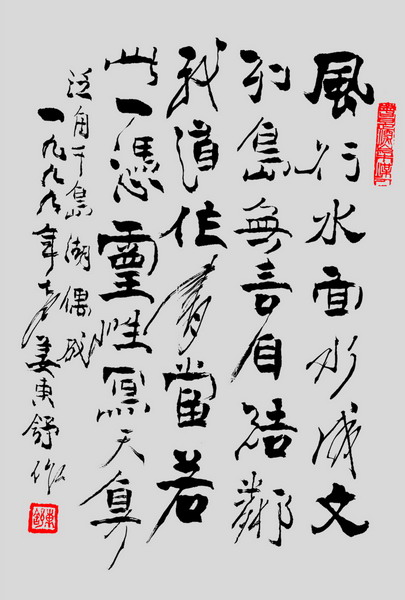 風行水面水成文
列島無言自結鄰
我道作書當若
此一憑靈性寫天真
泛舟千島湖偶成
一九九九年姜東舒作
東舒